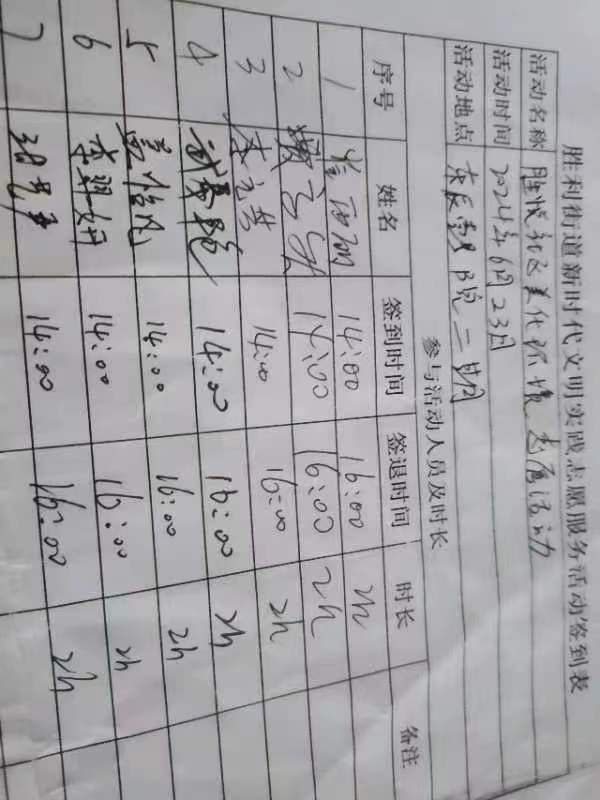 胜利街道新时代文明实践志愿服务活动签到表
活动名称 胜悦社区美化环境志愿活动
活动时间 2024年6月23日
活动地点 东辰 院二期
参与活动人员及时长
序号 姓名 签到时间 签退时间 时长 备注
1 14:00 16:00 2h
2 14:00 16:00 2h
3 14:00 16:00 2h
4 14:00 16:00 2h
5 14:00 16:00 2h
6 李羿妍 14:00 16:00 2h
7 14:00 16:00 2h